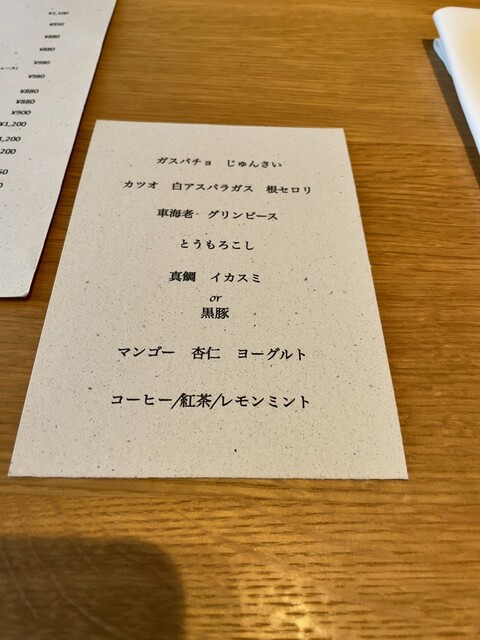 ¥1,100
¥950
¥880
¥880
¥980
¥980
¥880
¥880
¥900
¥1,200
1,200
200
ガスパチョ じゅんさい
カツオ 白アスパラガス 根セロリ
車海老 グリンピース
とうもろこし
真鯛 イカスミ
or
黒豚
マンゴー 杏仁 ヨーグルト
コーヒー/紅茶/レモンミント